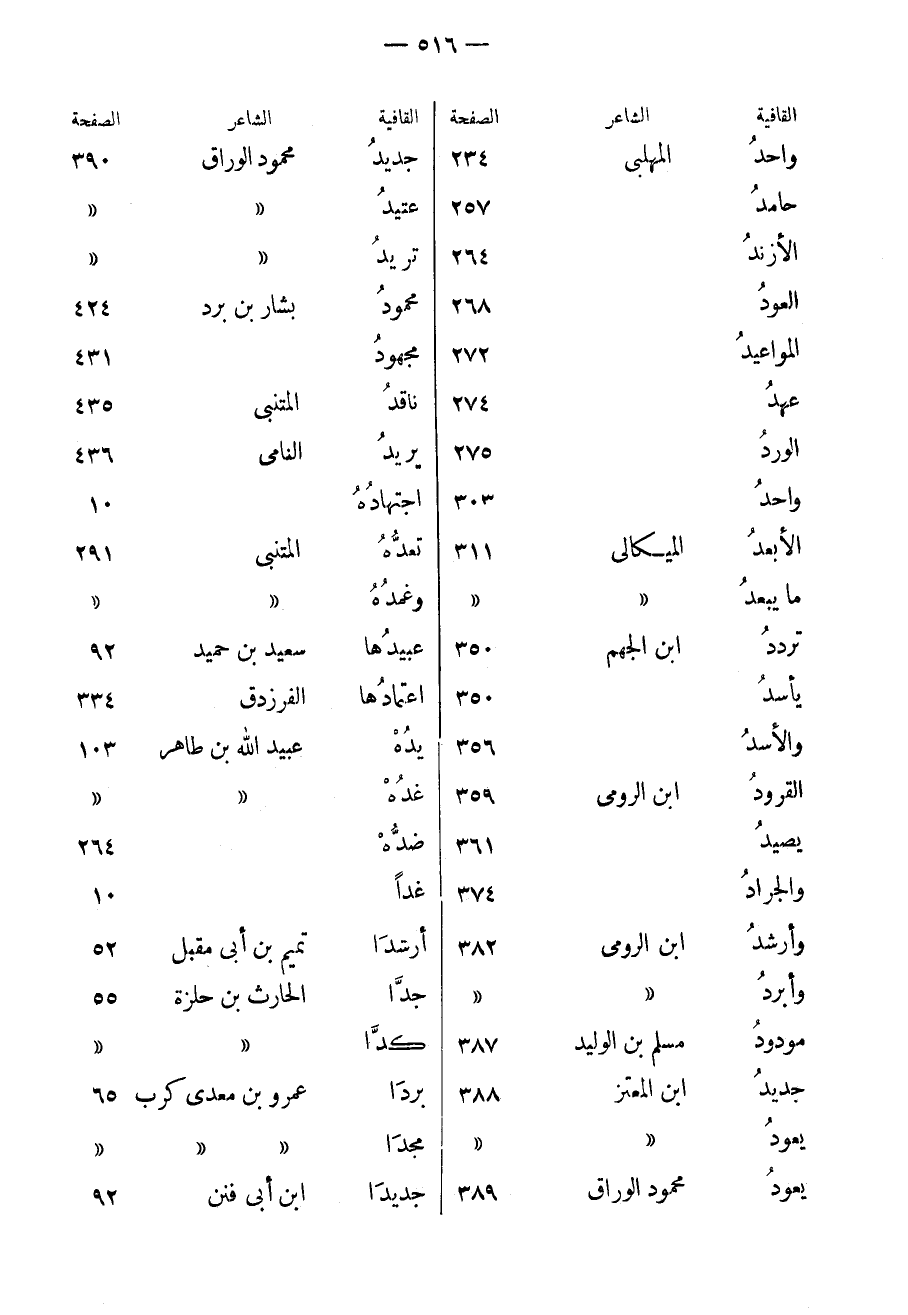 — ٥١٦ —
القافية الشاعر الصفحة
واحدُ المهلبى ٢٣٤
حامدُ ٢٥٧
الأزندُ ٢٦٤
العودُ ٢٦٨
المواعيدُ ٢٧٢
عهدُ ٢٧٤
الوردُ ٢٧٥
واحدُ ٣٠٣
الأبعدُ الميكالى ٣١١
ما يبعدُ » »
ترددُ ابن الجهم ٣٥٠
يأسدُ ٣٥٠
والأسدُ ٣٥٦
القرودُ ابن الرومى ٣٥٩
يصيدُ ٣٦١
والجرادُ ٣٧٤
وأرشدُ ابن الرومى ٣٨٢
وأبردُ » »
مودودُ مسلم بن الوليد ٣٨٧
جديدُ ابن المعتز ٣٨٨
يعودُ » »
يعودُ محمود الوراق ٣٨٩
القافية الشاعر الصفحة
جديدُ محمود الوراق ٣٩٠
عتيدُ » »
تريدُ » »
محمودُ بشار بن برد ٤٢٤
مجهودُ ٤٣١
ناقدُ المتنبى ٤٣٥
يريدُ النامى ٤٣٦
اجتهادُهُ ١٠
تعدُّهُ المتنبى ٢٩١
وغمدُهُ » »
عبيدُها سعيد بن حميد ٩٢
اعتمادُها الفرزدق ٣٣٤
يدُهْ عبيد الله بن طاهر ١٠٣
غدُهْ » »
ضدُّهْ ٢٦٤
غداً ١٠
أرشدَا تميم بن أبى مقبل ٥٢
جدَّا الحارث بن حلزة ٥٥
كدَّا » »
بردَا عمرو بن معدى كرب ٦٥
مجدَا » » »
جديدَا ابن أبى فنن ٩٢